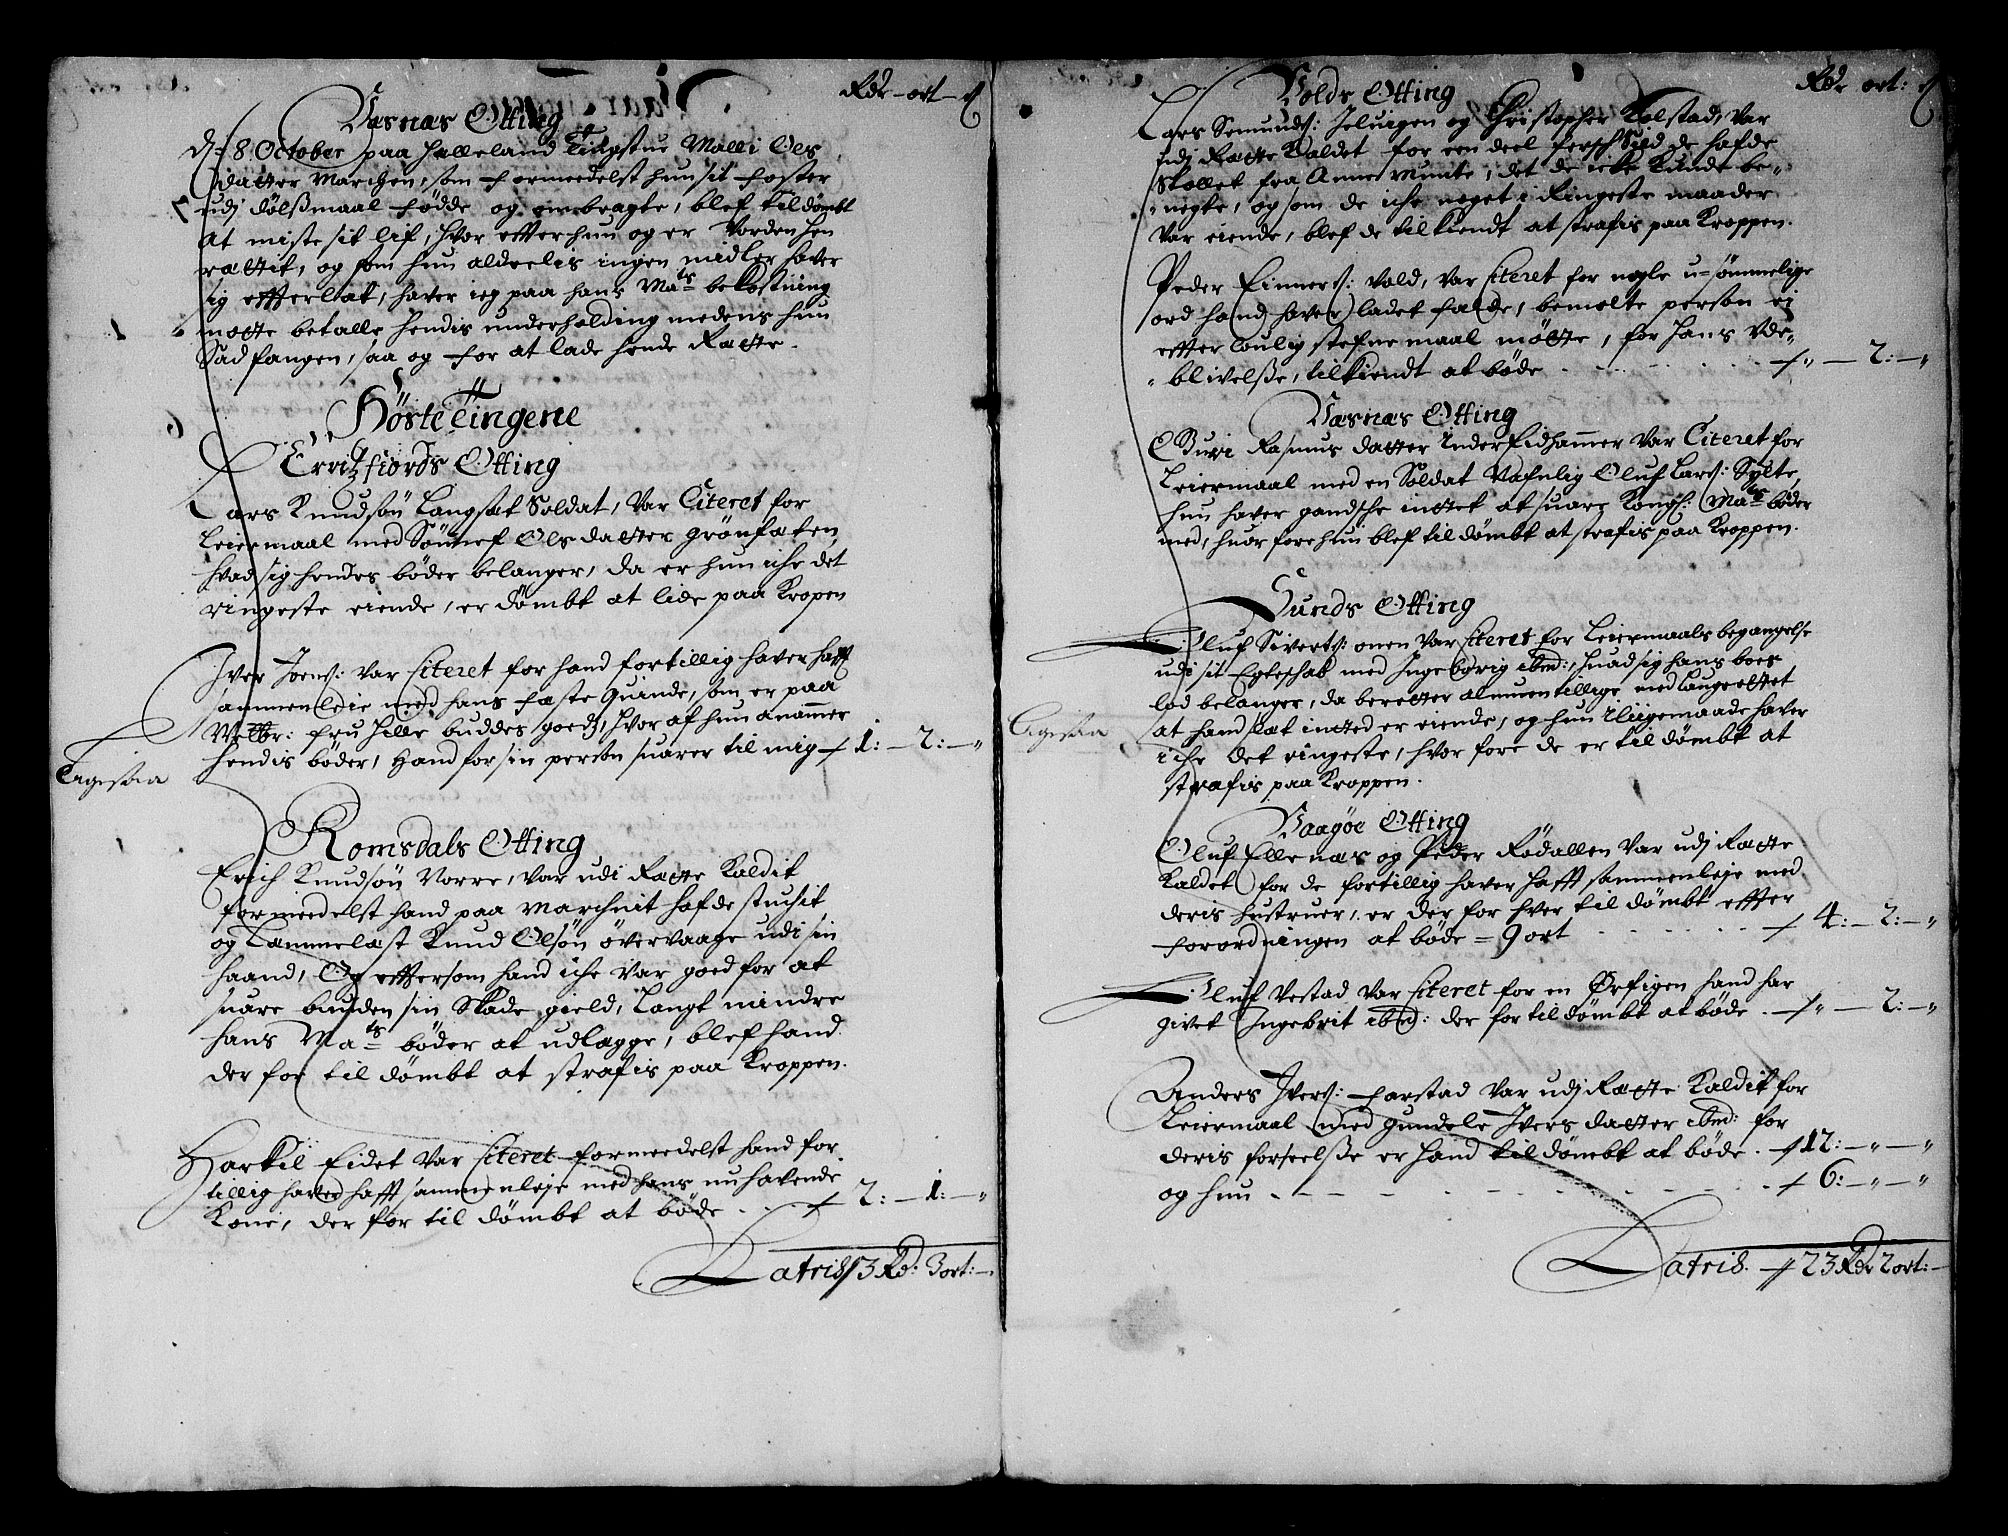 Rdr - ort - ß
Væsnæs Otting
d: 8 October paa Halleland Tingstue Malli Ols
datter Marchen, som formeedelst hun sit foster
udj dölßmaal födde og ombragte, blef tildömbt
at miste sit lif, hvor effter hun og er vorden hen
rættit, og som hun aldeelis ingen midler haver
sig effterlat, haver ieg paa hans Mats bekostning
motte betalle hendis underholding medens hun
Sad fangen, saa og for at lade hende Rætte.
Höste Tingene
Ervitzfiords Otting
Lars Knudsön Langsæt Soldat, var Citeret for
Leiermaal med Sönnef Olsdatter Grönfæten,
hvad sig hendes böder belanger, da er hun iche det
ringeste eiende, er dömbt at lide paa Kropen
Iver Joens: var Citeret for hand fortillig haver hafft
sammenleie med hans fæste Quinde, som er paa
Welbr: fru Hille buddes goeds, hvor af hun anammer
hendis böder, hand for sin person suarer til mig 1: - 2: - "
Tagesaa
Romsdals Otting
Erich Knudsön Vorre, var udi Rætte Kaldit
formeedelst hand paa Marchnit hafde stuchit
og Lammelæst Knud Olsön övervaage udi sin
haand, Og efftersom hand iche var goed for at
suare bunden sin Skade gield, Langt mindre
hans Mats böder at udlægge, blef hand
der for til dömbt at strafis paa Kroppen.
Harkil Eidet var Citeret formeedelst hand for
tillig haver hafft sammenleje med hans nu havende
Kone, der for til dömbt at böde - 2: - 1: - "
Latris 3 Rd: 3 ort: -
Rdr ort: ß
Volds Otting
Lars Semunds: Jeluigen og Christopher Kolstad, var
udj Rætte Kaldet for een deel fersch Sild de hafde
Skallet fra Anne Munte, det de icke Kunde be-
negte, og som de iche noget i Ringeste maader
var eiende, blef de tilkiendt at strafis paa Kroppen.
Peder Einners: vold, var Citeret for nogle u-sömmelige
ord hand haver ladet falde, bemelte person ei
effter loulig stefnemaal mötte, for hans Ude-
blivelße, tilkiendt at böde - " - 2: - "
Væsnæs Otting
Guri Rasmus datter Inderfidhammer var Citeret for
Leiermaal med en Soldat Nafnlig Oluf Lars: Sylte,
hun haver gandsche inttet at suare Kongl: Mats böder
med, huor fore hun blef til dömbt at strafis paa Kroppen.
Sunds Otting
Oluf Siverts: onen var Citeret for Leiermaals begangelse
udi sit Egteschab med Ingeborig ibm:, huad sig hans boes
lod belanger, da beretter almuen tillige med Laugrettet
at hand slæt intted er eiende, og hun iligemaade haver
iche det ringeste, hvor fore de er til dömbt at
strafis paa Kroppen.
Tagesaa
Vaagöe Otting
Oluf Ellenæs og Peder Rödallen var udj Rætte
Kaldet for de fortillig haver hafft sammenleje med
deris hustruer, er der for hver til dömbt effter
forordningen at böde = 9 ort - 4: - 2: - "
Oluf Vestad var Citeret for en Ørfigen hand har
givet Ingebrit ibm: der for til dömbt at böde - " - 2: - "
Anders Ivers: Farstad var udj Rætte Kaldit for
Leiermaal med Gundele Ivers datter ibm: for
deris forseelße er hand til dömbt at böde - 12: - " - "
og hun - 6: - " - "
Latris. - 23 Rdr 2 ort: -